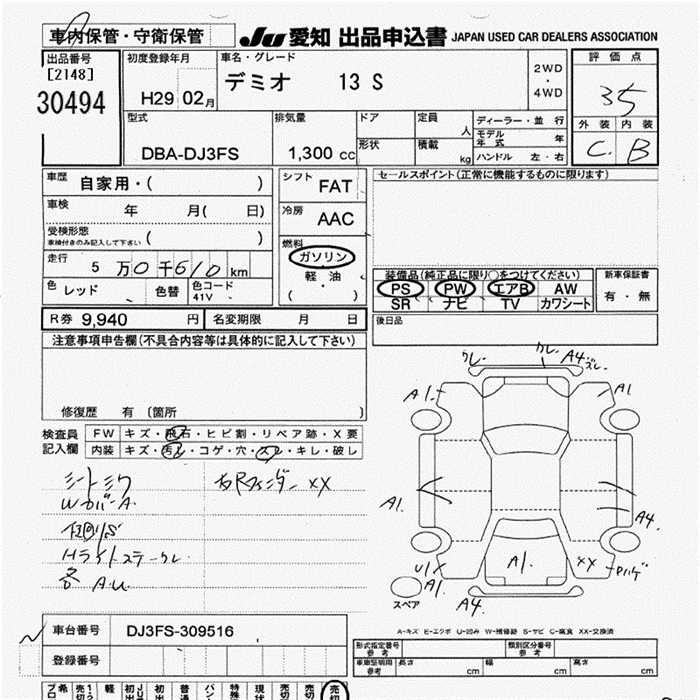 車内保管・守衛保管
JU 愛知 出品申込書 JAPAN USED CAR DEALERS ASSOCIATION
出品番号 初度登録年月 車名・グレード 評価点
[2148] デミオ 13 S 2WD ・ 4WD
30494 H29 02月 35
型式 排気量 ドア 定員 人 ディーラー・並行 外装 内装
モデル年式 年
DBA-DJ3FS 1,300 cc 形状 積載 kg ハンドル 左・右 C. B
車歴 自家用・( ) シフト FAT セールスポイント(正常に機能するものに限ります)
車検 年 月( 日) 冷房 AAC
受検形態
車検付きのみ記入して下さい ( ) 燃料
ガソリン
走行 5 万 0 千 6 1 0 km 軽・油 装備品(純正品に限り○をつけてください) 新車保証書
色 レッド 色替 色コード 41V ( ) PS PW エアB AW 有・無
SR ナビ TV カワシート
R券 9,940 円 名変期限 月 日 後日品
注意事項申告欄(不具合内容等は具体的に記入して下さい)
クレ. クレ. A4 ズレ.
A1. A1
修復歴 有 〔箇所 〕
検査員 FW キズ・飛石・ヒビ割・リペア跡・X要
記入欄 内装 キズ・汚レ・コゲ・穴・スレ・キレ・破レ
シートミワ 右Rフェンダー XX
WカバーA.
Hライトステークレ
各 A.U.
A1. A4.
A1. XX
U1 A1. Pハゲ
スペア A4.
A-キズ E-エクボ U-凹み W-補修跡 S-サビ C-腐食 XX-交換済
車台番号 DJ3FS-309516
登録番号
形式指定番号 参考 類別区分番号 参考
車庫証明用 参考 長さ cm 幅 cm 高さ cm